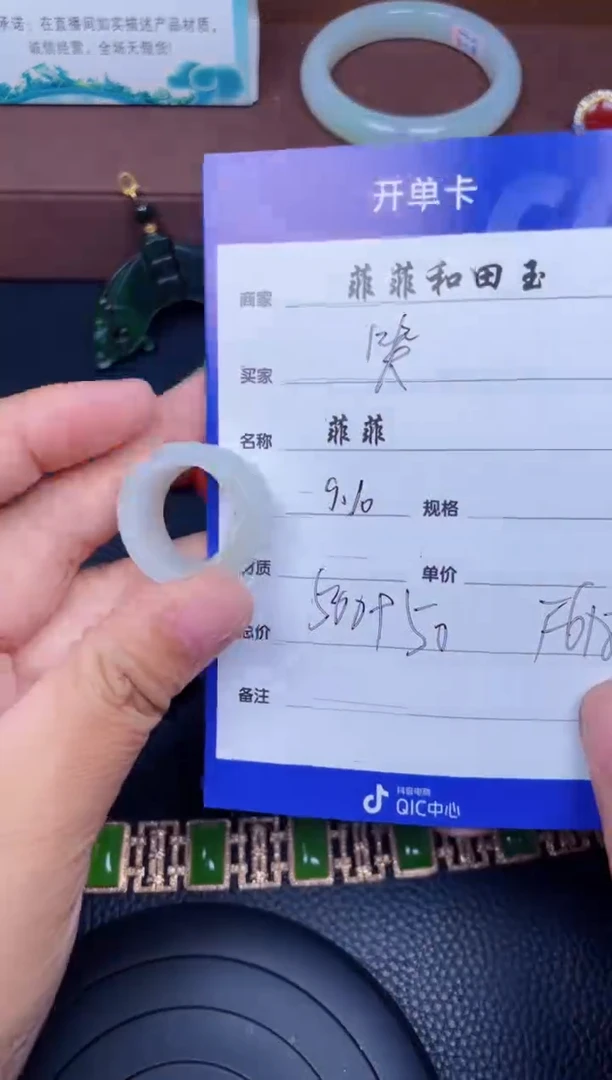 承诺:在直播间如实描述产品材质,
诚信经营,全场天然货!
开单卡
商家 菲菲和田玉
买家
名称 菲菲
9.10 规格
材质 单价
总价 500+50
备注
抖音电商
QIC中心